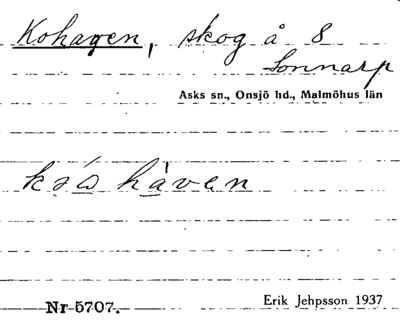 Kohagen, skog å 8
Sonnarp
Asks sn., Onsjö hd., Malmöhus län
håven
Nr 5707.
Erik Jehpsson 1937